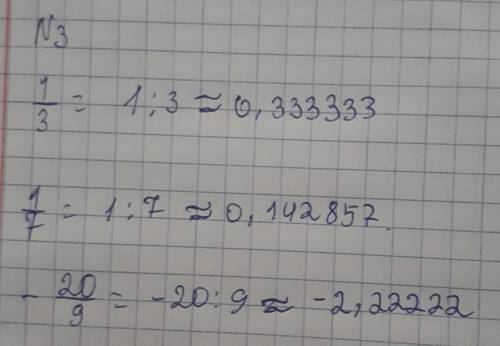 N3
1/3 = 1:3 ≈ 0,333333
1/7 = 1:7 ≈ 0,142857.
- 20/9 = -20:9 ≈ -2,22222